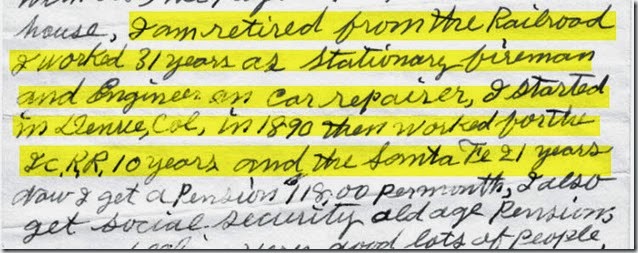 house, I am retired from the Railroad
I worked 31 years as stationary fireman
and Engineer an car repairer, I started
in Denvre, Col, in 1890 then worked for the
I C, R,R, 10 years and the Santa Fe 21 years
now I get a Pension 118,00 per month, I also
get social security old age Pension,
very good lots of people,